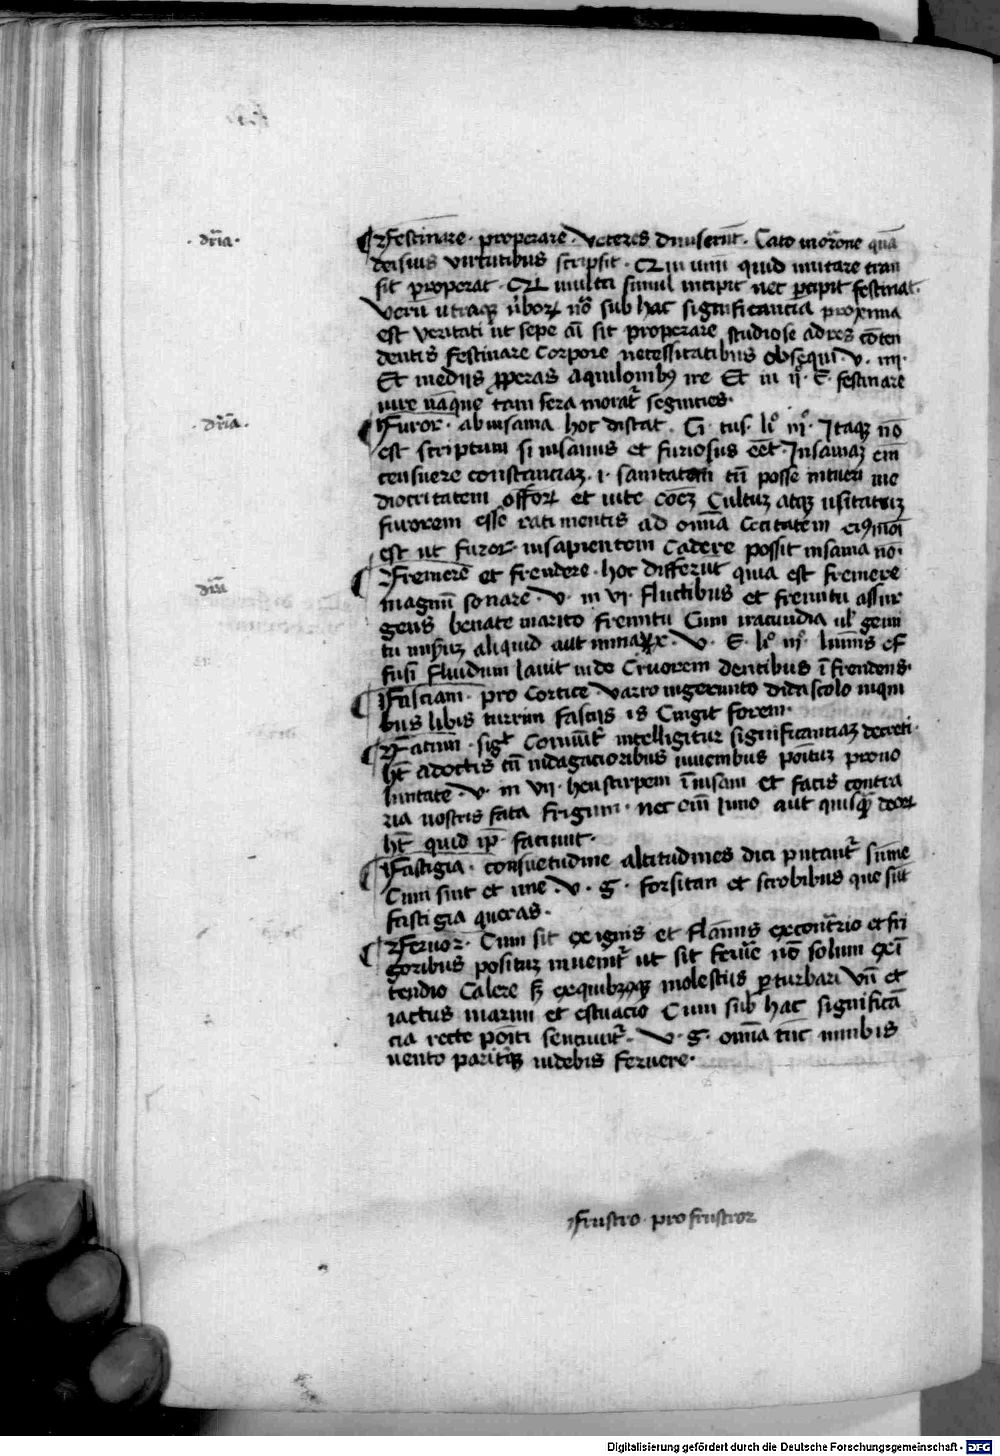 dr̄ia
¶ Festinare · properare · Veteres diuiserūt · Cato in or̄one quā
deisuis virtutibus scripsit · Qui unū quid mutare tran
sit properat · Qui multa simul incipit nec percipit festinat ·
Verū utraqꝫ sub hac significantia proxima
est veritati ut sepe cū sit properare studiose ad res cōten
dentis festinare Corpore necessitatibus obsequi · V · iiii ·
Et medijs ꝓperas aquilonibꝰ ire Et in ij° · E · festinare
uire nāque tam sera moratᷣ segnicies ·
dr̄ia
¶ Furor · ab insania hoc distat · Ci · tus · li° iij° · Itaqꝫ nō
est scriptum si insanus et furiosus eēt · Insaniaꝫ em̄
censuere constanciaꝫ · i · sanitatem tn̄ posse intueri me
diocritatem offoꝝ et uite cōeꝫ Cultuꝫ atqꝫ usitatuꝫ
furorem esse rati mentis ad omīa Cecitatem
est ut furor insapientem Cadere possit insania nō ·
dr̄ia
¶ Fremere et frendere · hoc differūt quia est fremere
magnū sonare · V · in vi · fluctibus et fremitu assur
gens benate marito fremitu Cum iracundia ul̄ gemi
tu aliquid aut minax · V · E · li° iij° · luminis ef
fusi fluidum lauit inde Cruorem dentibus īfrendens ·
¶ Fasciam · pro Cortice Varro ingerunto didascolo inqui
bus libis turrim fascijs is Cingit forem ·
¶ Fatum · intelligitur significantiaꝫ decreti ·
hr̄ adoctis tn̄ indagatioribus inuentibus ponituꝫ prono
luntate · V · in vij · heu stirpem īuisam et fatis contra
ria nostris fata frigum · nec em̄ Iuno aut quisqꝫ̄ deoꝝ
hr̄ quid ip̄ faciunt ·
¶ Fastigia · consuetudine altitudines dici putantᷣ sūme
Cum sint et ime · V · G · forsitan et scrobibus que sīt
fastigia queras ·
¶ Feruor · Cum sit ex ignis et flāmis excontrario et fri
goribus posituꝫ inuenitᷣ ut sit feruē nō solum exī
cendio Calere sꝫ molestijs perturbari Vn̄ et
iactus marini et estuacio Cum sub hac significā
cia recte pōiti senciuntᷣ · V · G · omīa tūc nimbis
uento pariterqꝫ uidebis feruere ·
Frustro · pro frustror
Digitalisierung gefördert durch die Deutsche Forschungsgemeinschaft - DFG